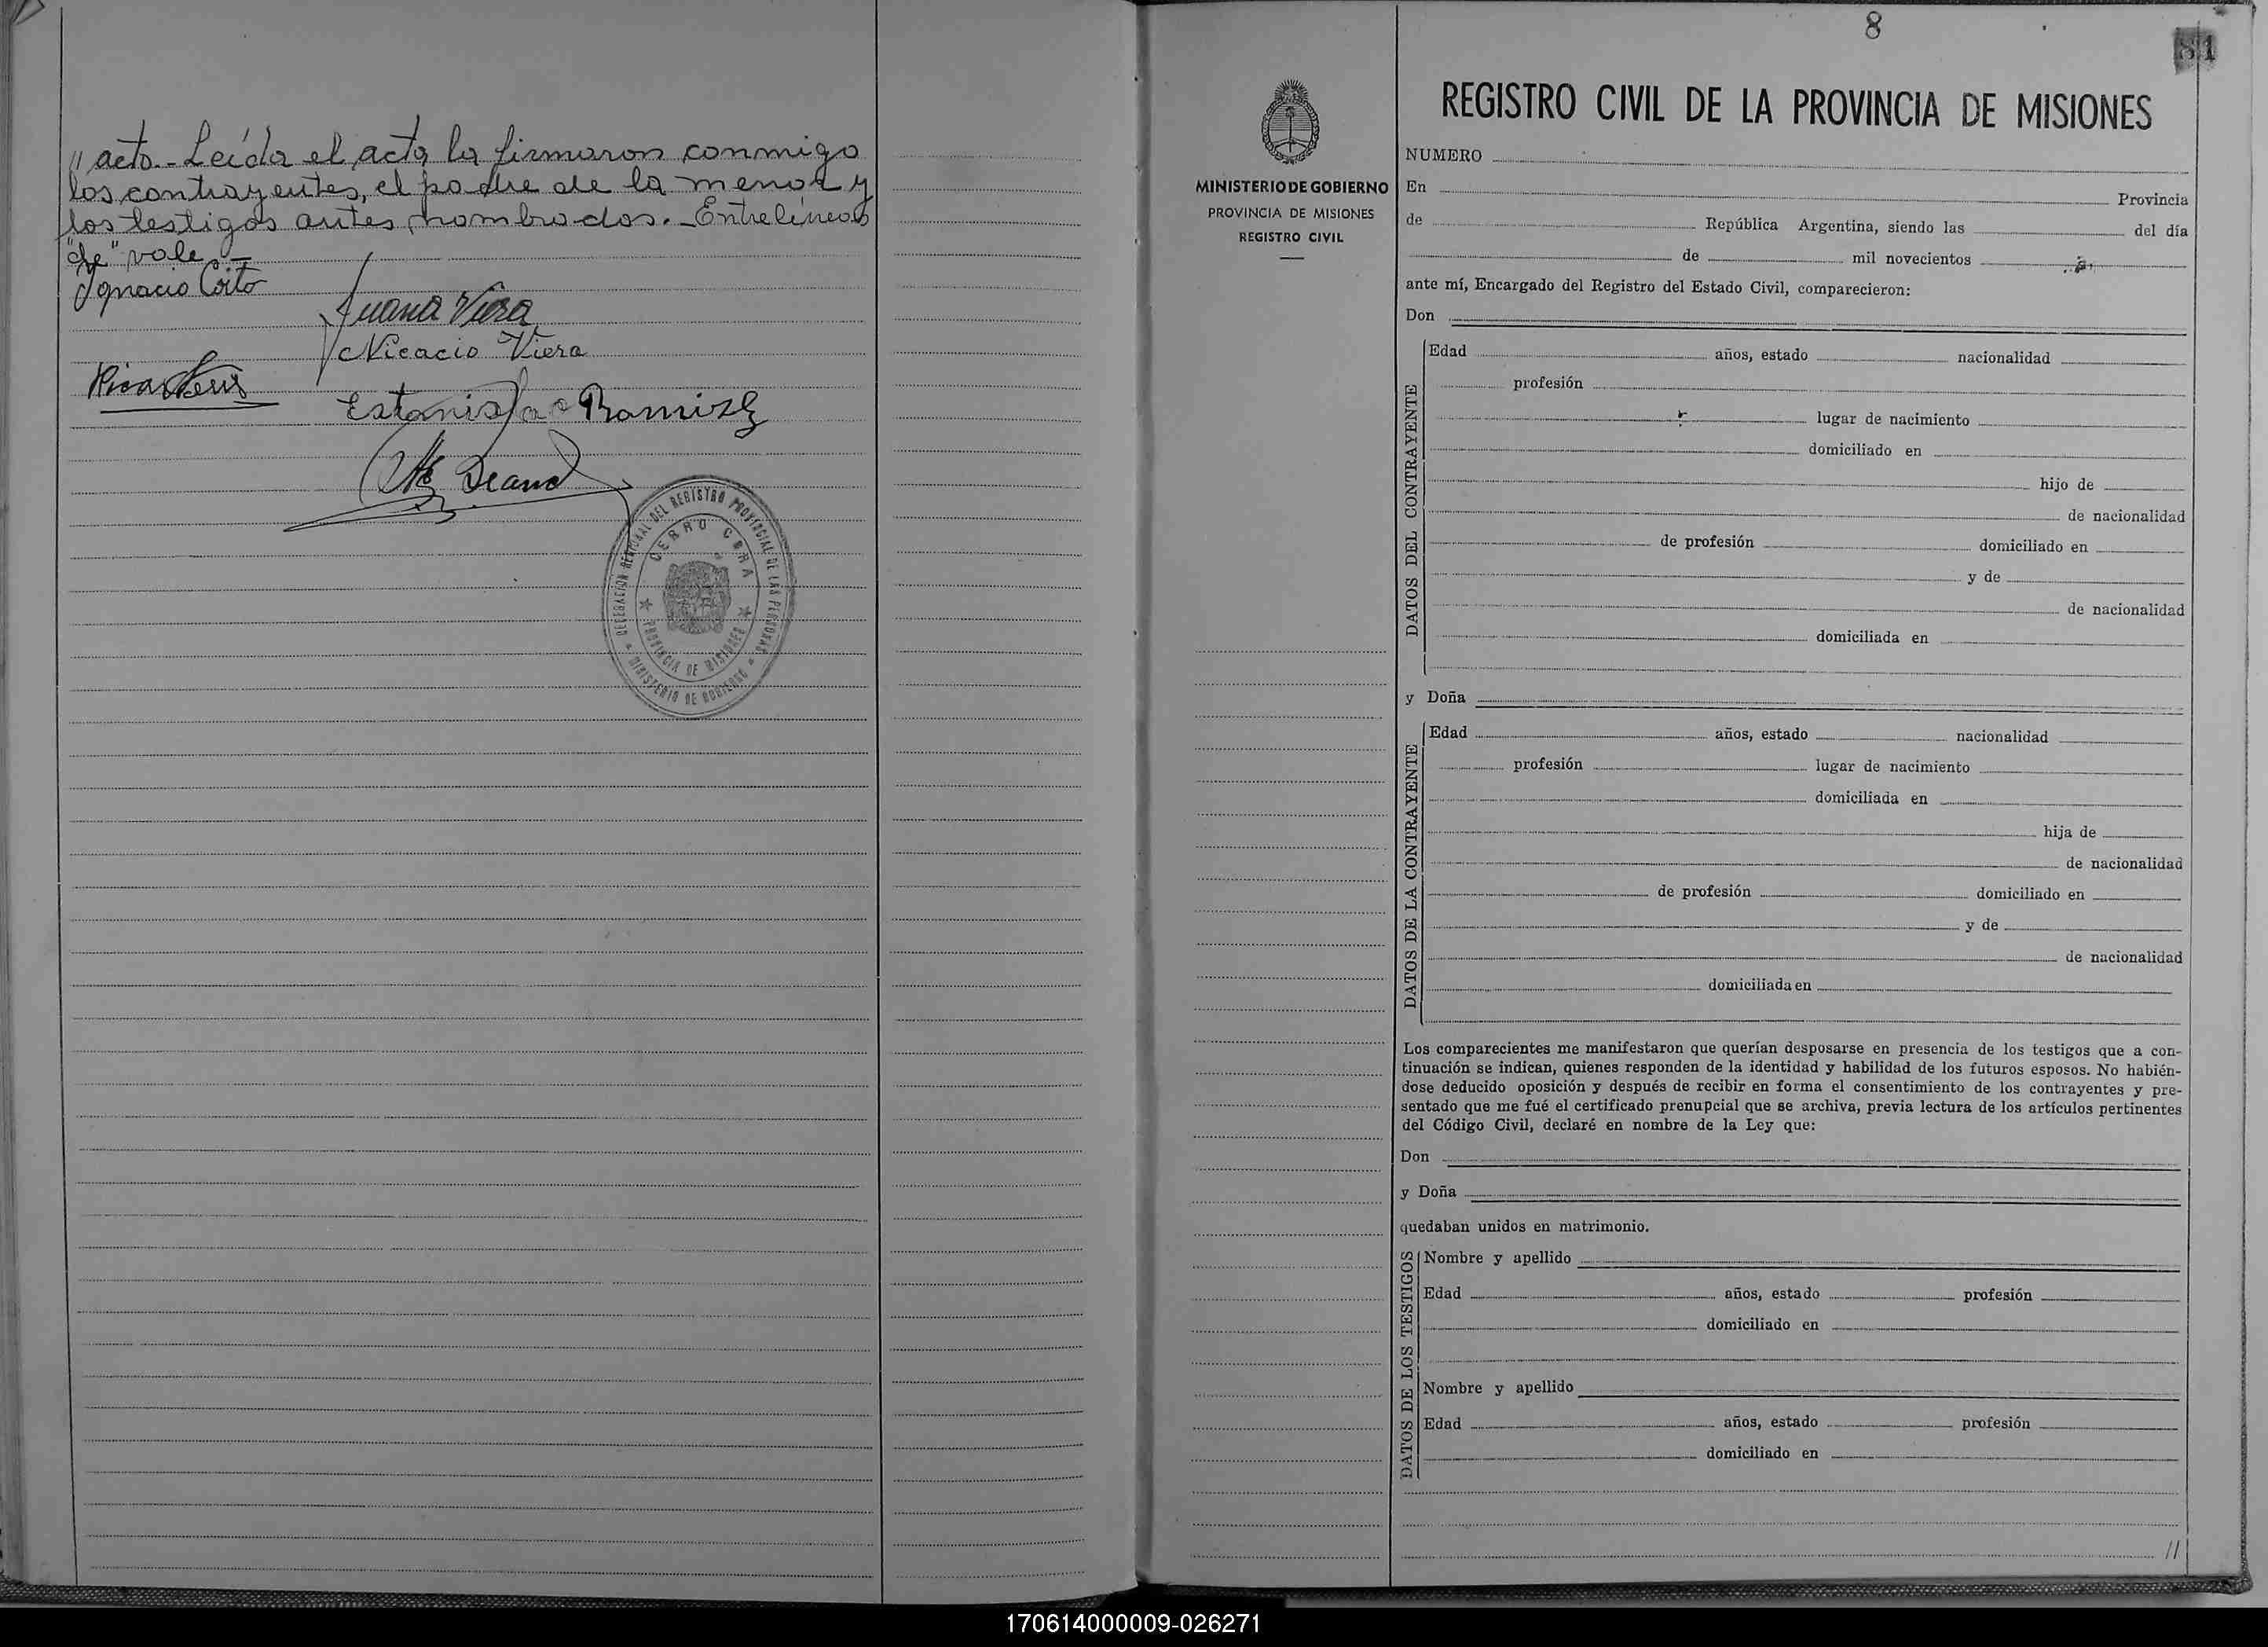 " acto.- Leída el acta la firmaron conmigo
los contrayentes, el padre de la menor y
los testigos antes nombrados.- Entrelíneas
"de" vale.-
Ignacio
Juana Viera
Nicacio Viera
Estanislao Ramirez
DELEGACION REGIONAL DEL REGISTRO PROVINCIAL DE LAS PERSONAS
CERRO CORA
PROVINCIA DE MISIONES
MINISTERIO DE GOBIERNO
8
81
MINISTERIO DE GOBIERNO
PROVINCIA DE MISIONES
REGISTRO CIVIL
REGISTRO CIVIL DE LA PROVINCIA DE MISIONES
NUMERO
En Provincia
de República Argentina, siendo las del día
de mil novecientos
ante mí, Encargado del Registro del Estado Civil, comparecieron:
Don
DATOS DEL CONTRAYENTE
Edad años, estado nacionalidad
profesión
lugar de nacimiento
domiciliado en
hijo de
de nacionalidad
de profesión domiciliado en
y de
de nacionalidad
domiciliada en
y Doña
DATOS DE LA CONTRAYENTE
Edad años, estado nacionalidad
profesión lugar de nacimiento
domiciliada en
hija de
de nacionalidad
de profesión domiciliado en
y de
de nacionalidad
domiciliada en
Los comparecientes me manifestaron que querían desposarse en presencia de los testigos que a con-
tinuación se indican, quienes responden de la identidad y habilidad de los futuros esposos. No habién-
dose deducido oposición y después de recibir en forma el consentimiento de los contrayentes y pre-
sentado que me fué el certificado prenupcial que se archiva, previa lectura de los artículos pertinentes
del Código Civil, declaré en nombre de la Ley que:
Don
y Doña
quedaban unidos en matrimonio.
DATOS DE LOS TESTIGOS
Nombre y apellido
Edad años, estado profesión
domiciliado en
Nombre y apellido
Edad años, estado profesión
domiciliado en
//
170614000009-026271